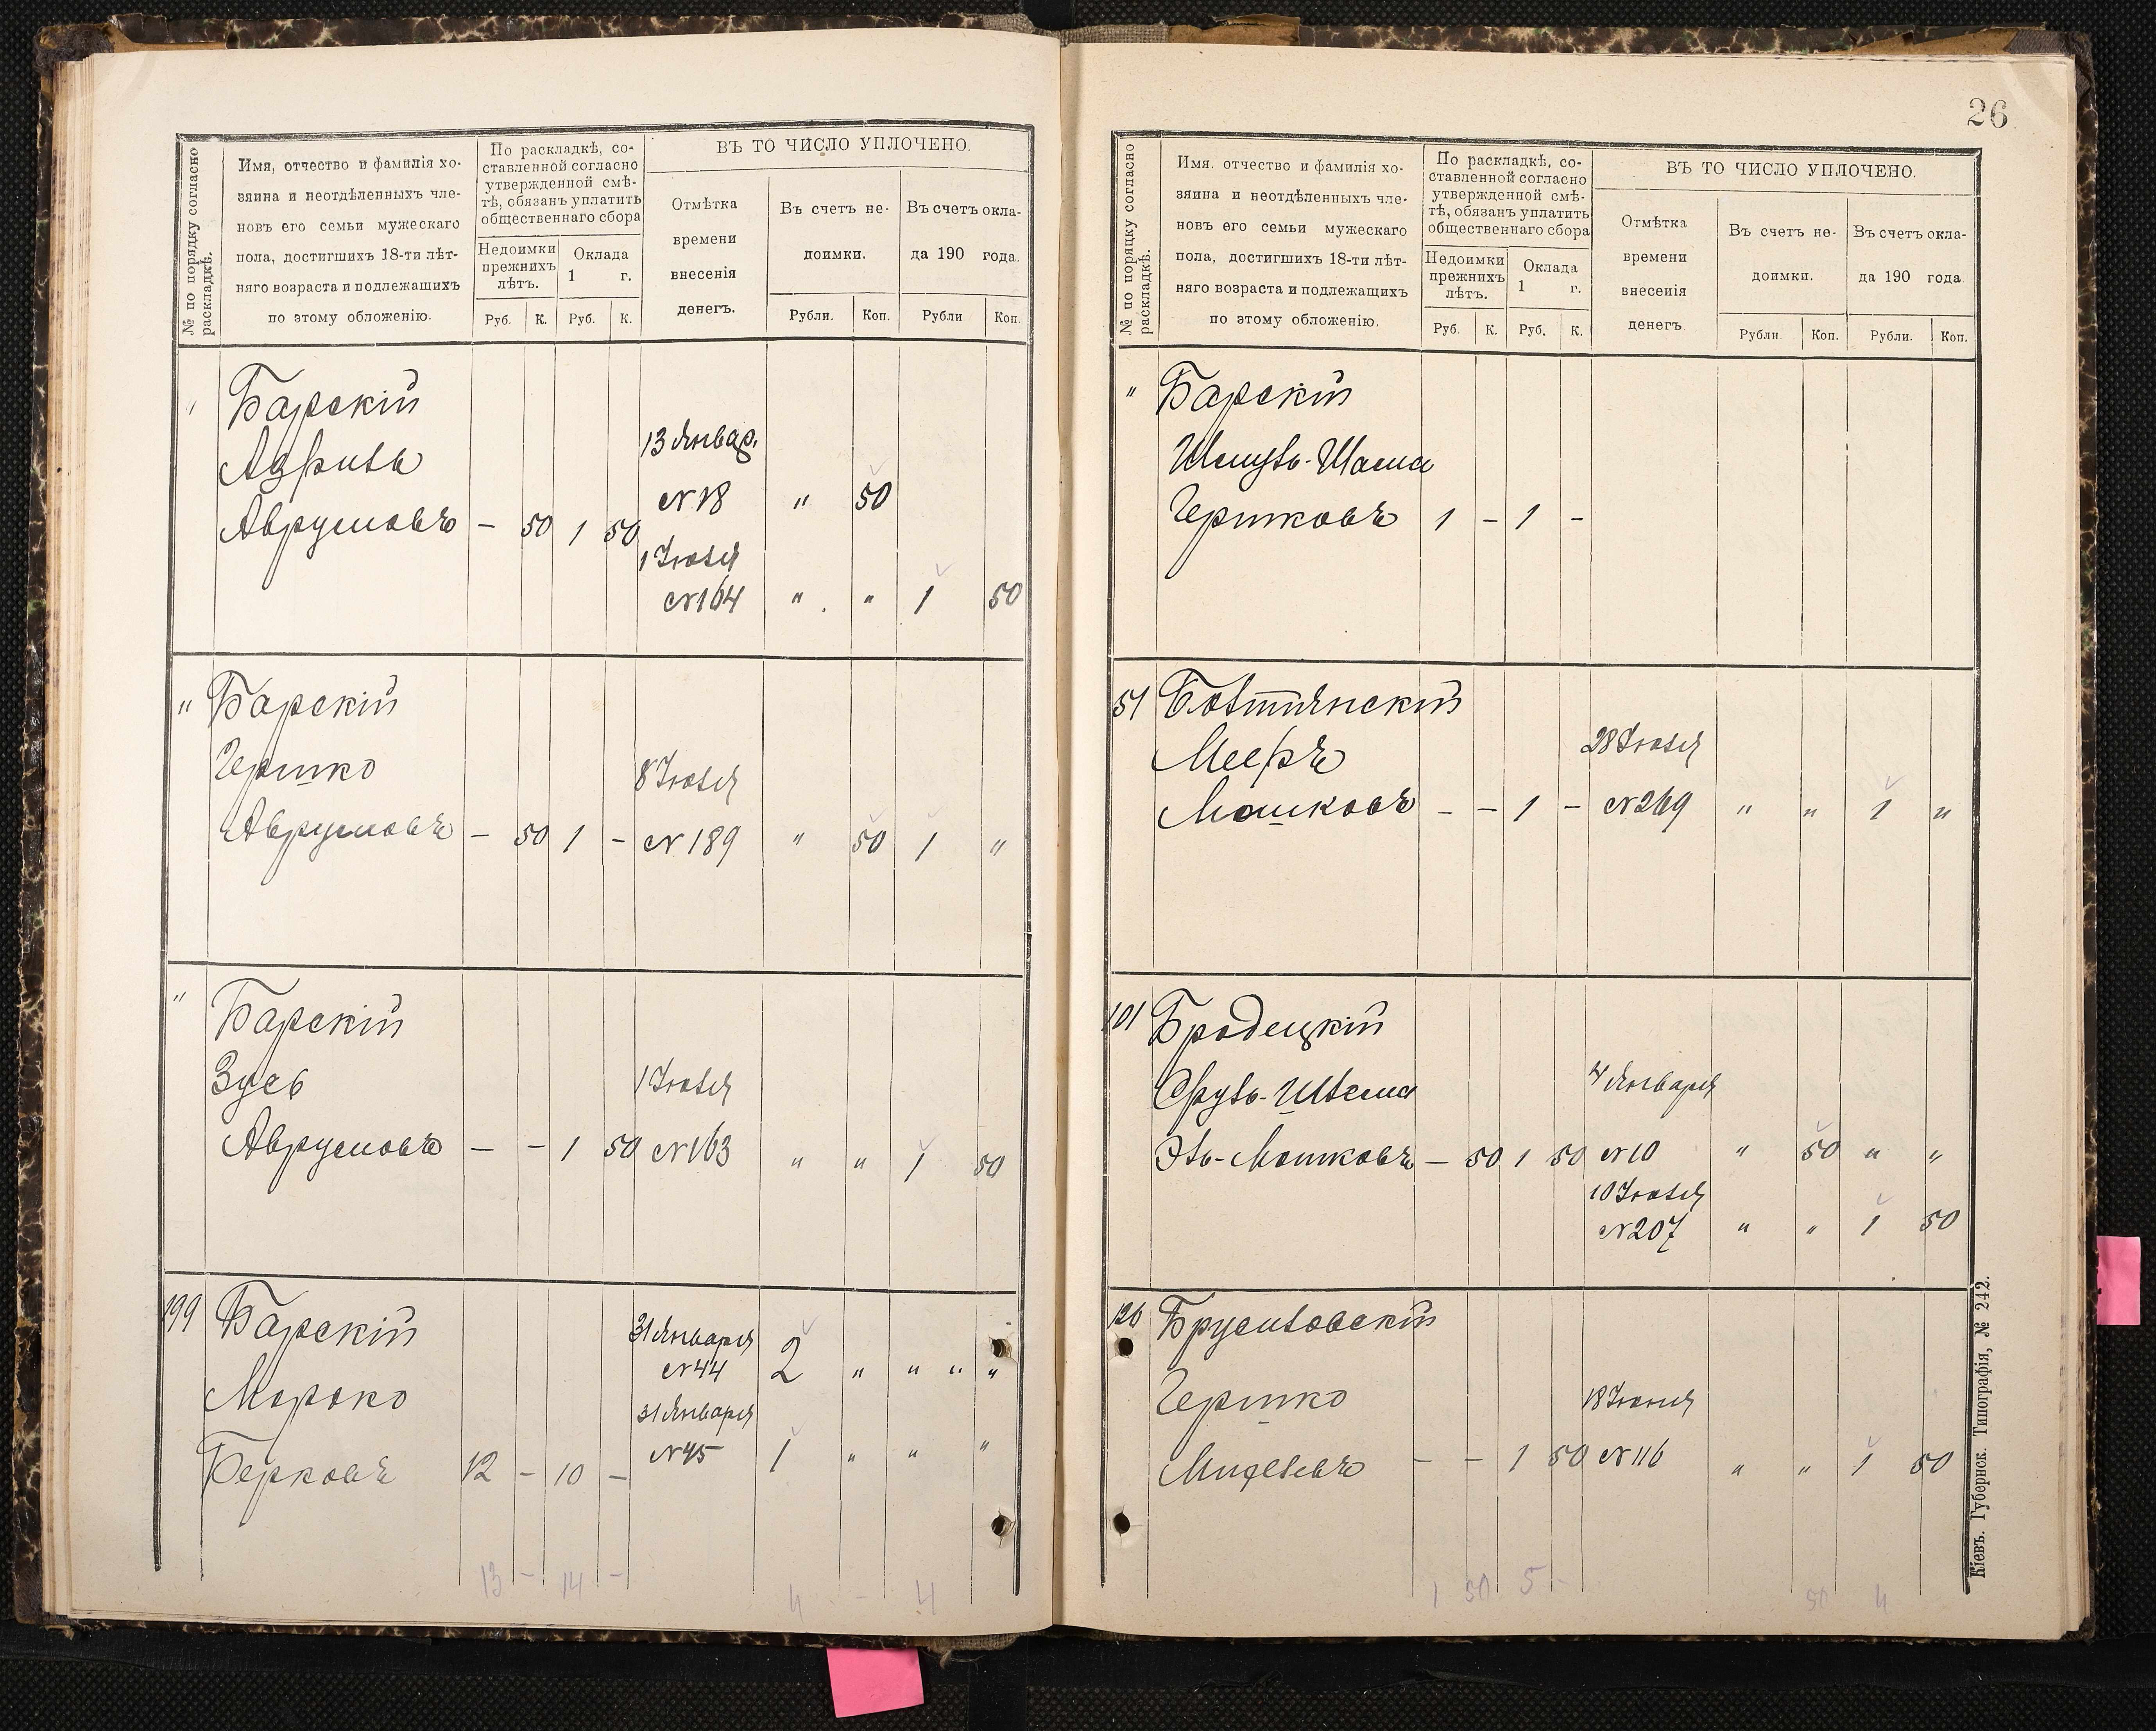 № по порядку согласно раскладкѣ.
Имя, отчество и фамилія хо-
зяина и неотдѣленныхъ чле-
новъ его семьи мужескаго
пола, достигшихъ 18-ти лѣт-
няго возраста и подлежащихъ
по этому обложенію.
По раскладкѣ, со-
ставленной согласно
утвержденной смѣ-
тѣ, обязанъ уплатить
общественнаго сбора
Недоимки прежнихъ лѣтъ.
Оклада 1 г.
Руб. К. Руб. К.
ВЪ ТО ЧИСЛО УПЛОЧЕНО.
Отмѣтка
времени
внесенія
денегъ.
Въ счетъ не-
доимки.
Въ счетъ окла-
да 190 года.
Рубли. Коп. Рубли Коп.
" Барскій
13 Январ.
Авруловъ — 50 1 50
№ 18 " 50
1 Іюля
№ 164 " " 1 50
" Барскій
Гершко
8 Іюля
Аврумовъ — 50 1 — № 189 " 50 1 "
" Барскій
Зусь
1 Іюля
Аврумовъ — — 1 50 № 163 " " 1 50
199 Барскій
31 Января
№ 44 2 " " " "
Мороко
31 Января
№ 45 1 " " "
Берковъ 12 — 10 —
13 — 14 — 4 — 4
26
№ по порядку согласно раскладкѣ.
Имя. отчество и фамилія хо-
зяина и неотдѣленныхъ чле-
новъ его семьи мужескаго
пола, достигшихъ 18-ти лѣт-
няго возраста и подлежащихъ
по этому обложенію.
По раскладкѣ, со-
ставленной согласно
утвержденной смѣ-
тѣ, обязанъ уплатить
общественнаго сбора
Недоимки прежнихъ лѣтъ.
Оклада 1 г.
Руб. К. Руб. К.
ВЪ ТО ЧИСЛО УПЛОЧЕНО.
Отмѣтка
времени
внесенія
денегъ
Въ счетъ не-
доимки.
Въ счетъ окла-
да 190 года
Рубли. Коп. Рубли. Коп.
" Барскій
Шмуль-Шама
Гершковъ 1 — 1 —
51 Болтянскій
Мееръ
28 Іюля
Мошковъ — — 1 — № 269 " " 1 "
101 Бродецкій
Сруль-Шлема
4 Января
Эль-Мошковъ — 50 1 50 № 10 " 50 " "
10 Іюля
№ 207 " " 1 50
126 Брусиловскій
Гершко
18 Іюня
— — 1 50 № 116 " " 1 50
1 50 5 — 50 4
Кіевъ. Губернск. Типографія, № 242.